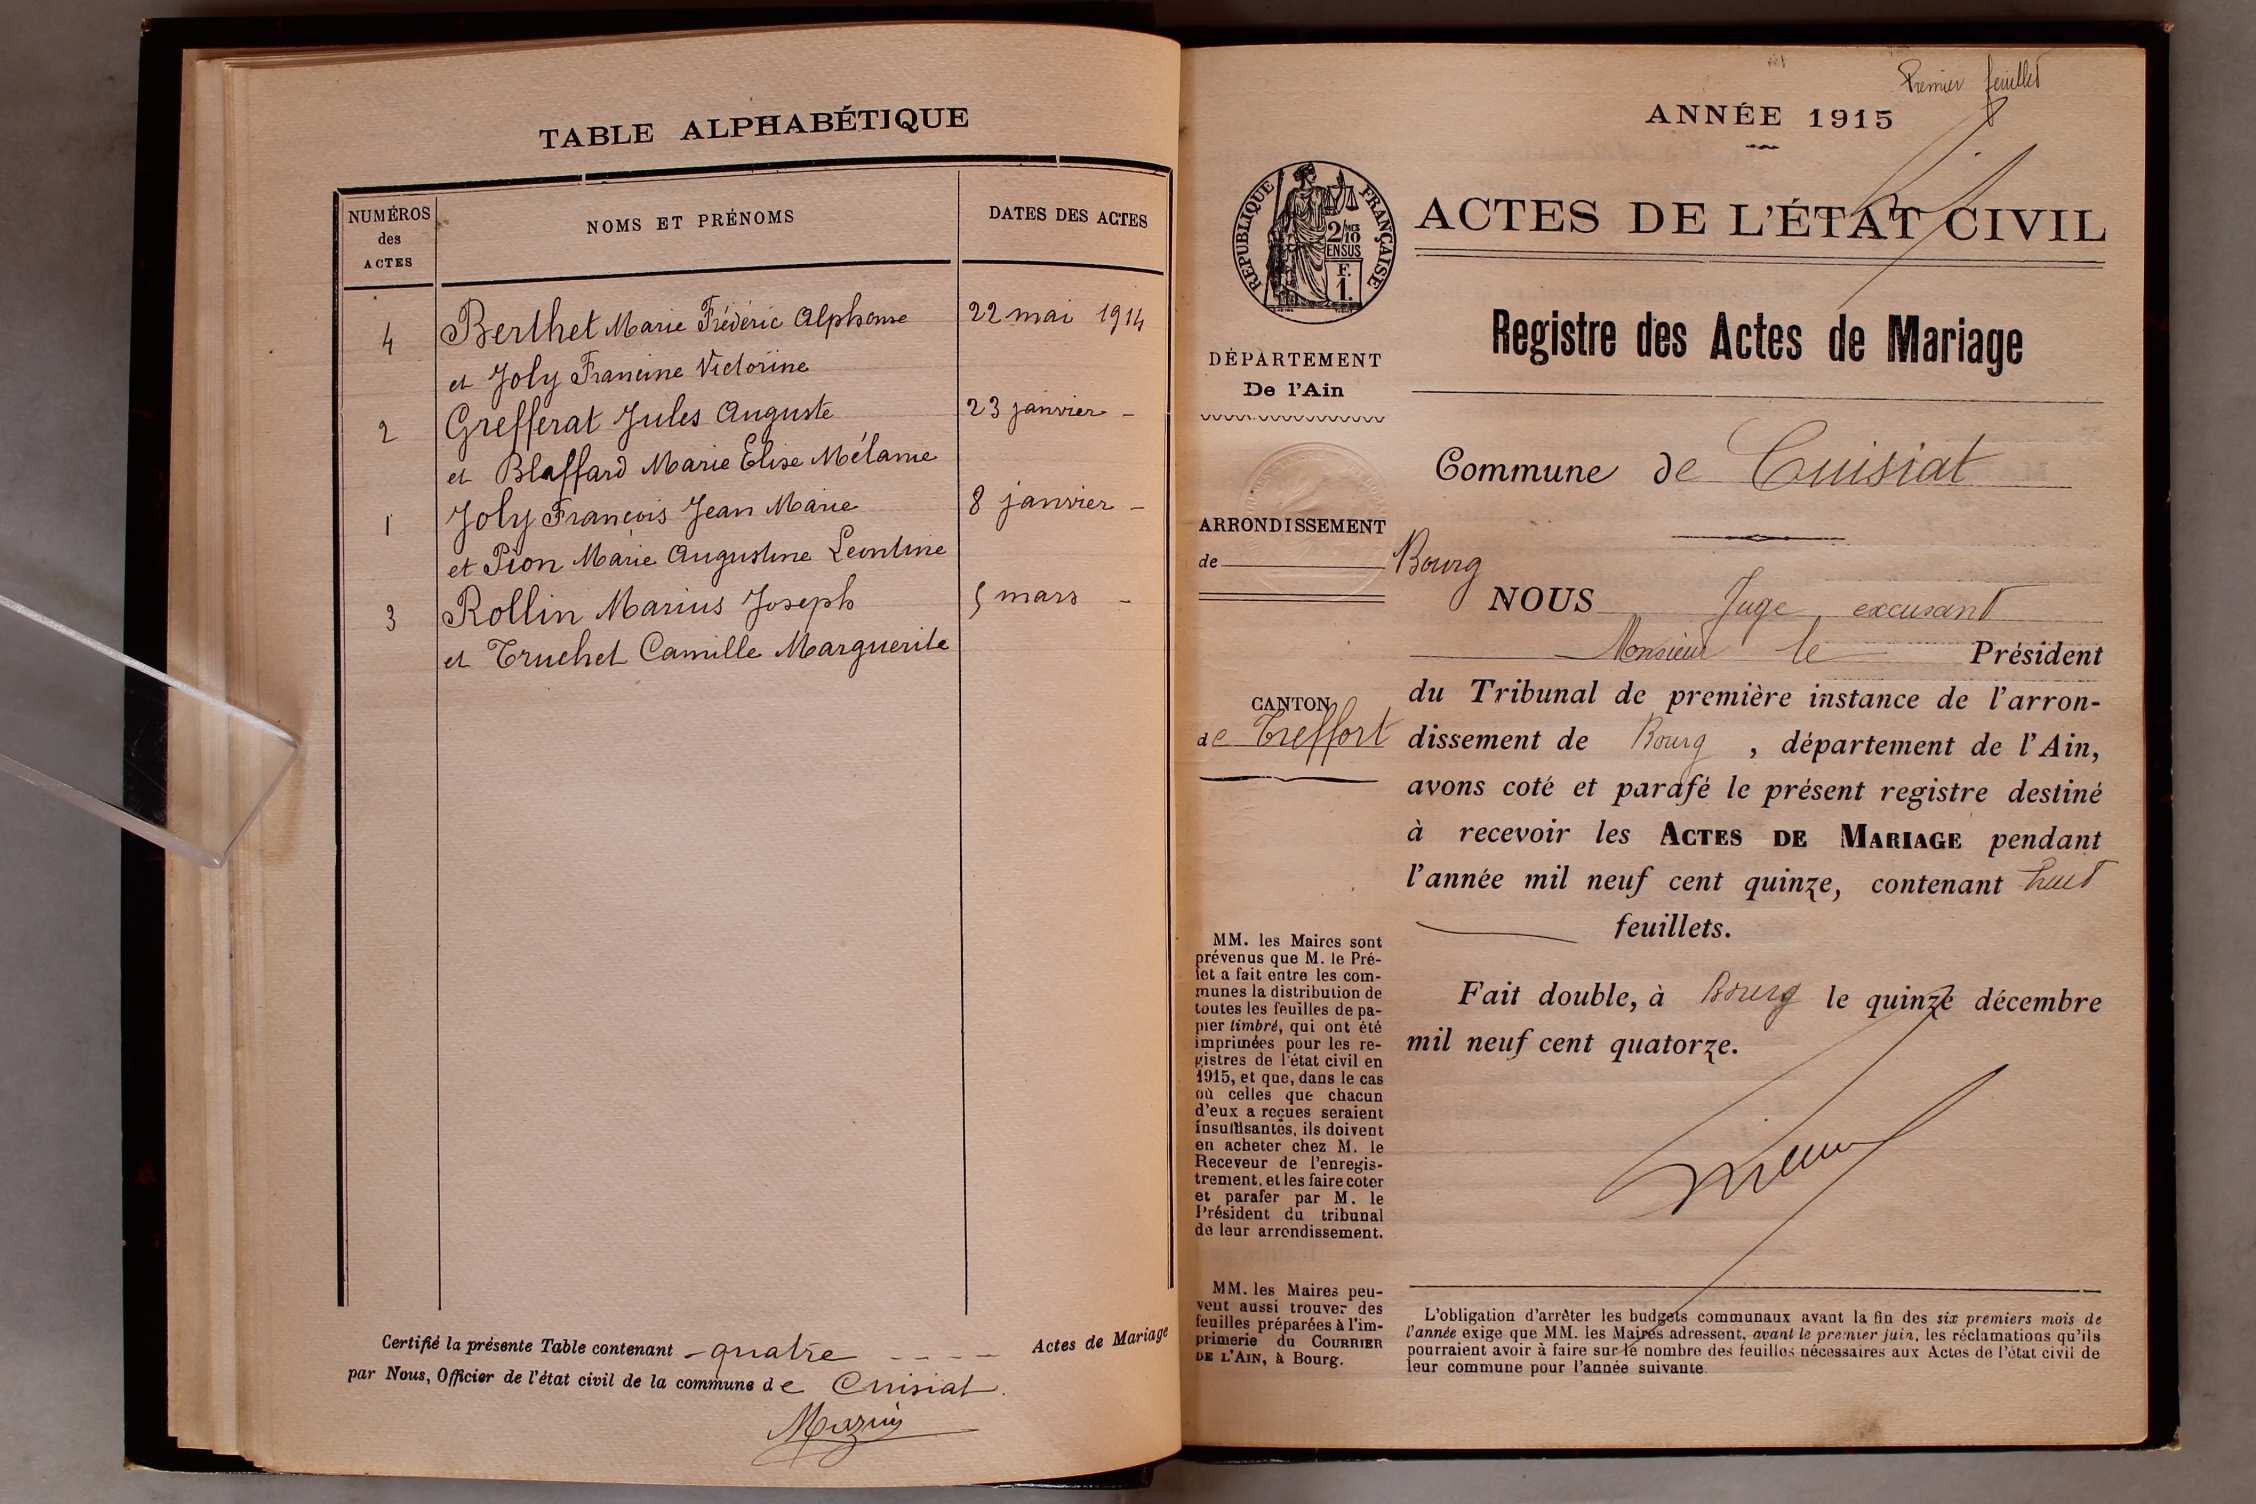 TABLE ALPHABÉTIQUE
NUMÉROS des ACTES
NOMS ET PRÉNOMS
DATES DES ACTES
4 Berthet Marie Frédéric Alphonse 22 mai 1914
et Joly Francine Victorine
2 Grefferat Jules Auguste 23 janvier -
et Blaffard Marie Elise Mélanie
1 Joly François Jean Marie 8 janvier -
et Pion Marie Augustine Leontine
3 Rollin Marius Joseph 5 mars -
et Truchet Camille Marguerite
Certifié la présente Table contenant - quatre - - - - Actes de Mariage
par Nous, Officier de l'état civil de la commune de Cuisiat.
Premier feuillet
ANNÉE 1915
RÉPUBLIQUE FRANÇAISE
2/10
EN SUS
F.
1.
ACTES DE L'ÉTAT CIVIL
Registre des Actes de Mariage
DÉPARTEMENT
De l'Ain
Commune de Cuisiat
ARRONDISSEMENT
de Bourg
CANTON
de Treffort
NOUS Juge excusant
Monsieur le Président
du Tribunal de première instance de l'arron-
dissement de Bourg, département de l'Ain,
avons coté et parafé le présent registre destiné
à recevoir les ACTES DE MARIAGE pendant
l'année mil neuf cent quinze, contenant huit
feuillets.
Fait double, à Bourg le quinze décembre
mil neuf cent quatorze.
MM. les Maires sont
prévenus que M. le Pré-
fet a fait entre les com-
munes la distribution de
toutes les feuilles de pa-
pier timbré, qui ont été
imprimées pour les re-
gistres de l'état civil en
1915, et que, dans le cas
où celles que chacun
d'eux a reçues seraient
insuffisantes, ils doivent
en acheter chez M. le
Receveur de l'enregis-
trement, et les faire coter
et parafer par M. le
Président du tribunal
de leur arrondissement.
MM. les Maires peu-
vent aussi trouver des
feuilles préparées à l'im-
primerie du COURRIER
DE L'AIN, à Bourg.
L'obligation d'arrêter les budgets communaux avant la fin des six premiers mois de
l'année exige que MM. les Maires adressent, avant le premier juin, les réclamations qu'ils
pourraient avoir à faire sur le nombre des feuilles nécessaires aux Actes de l'état civil de
leur commune pour l'année suivante.